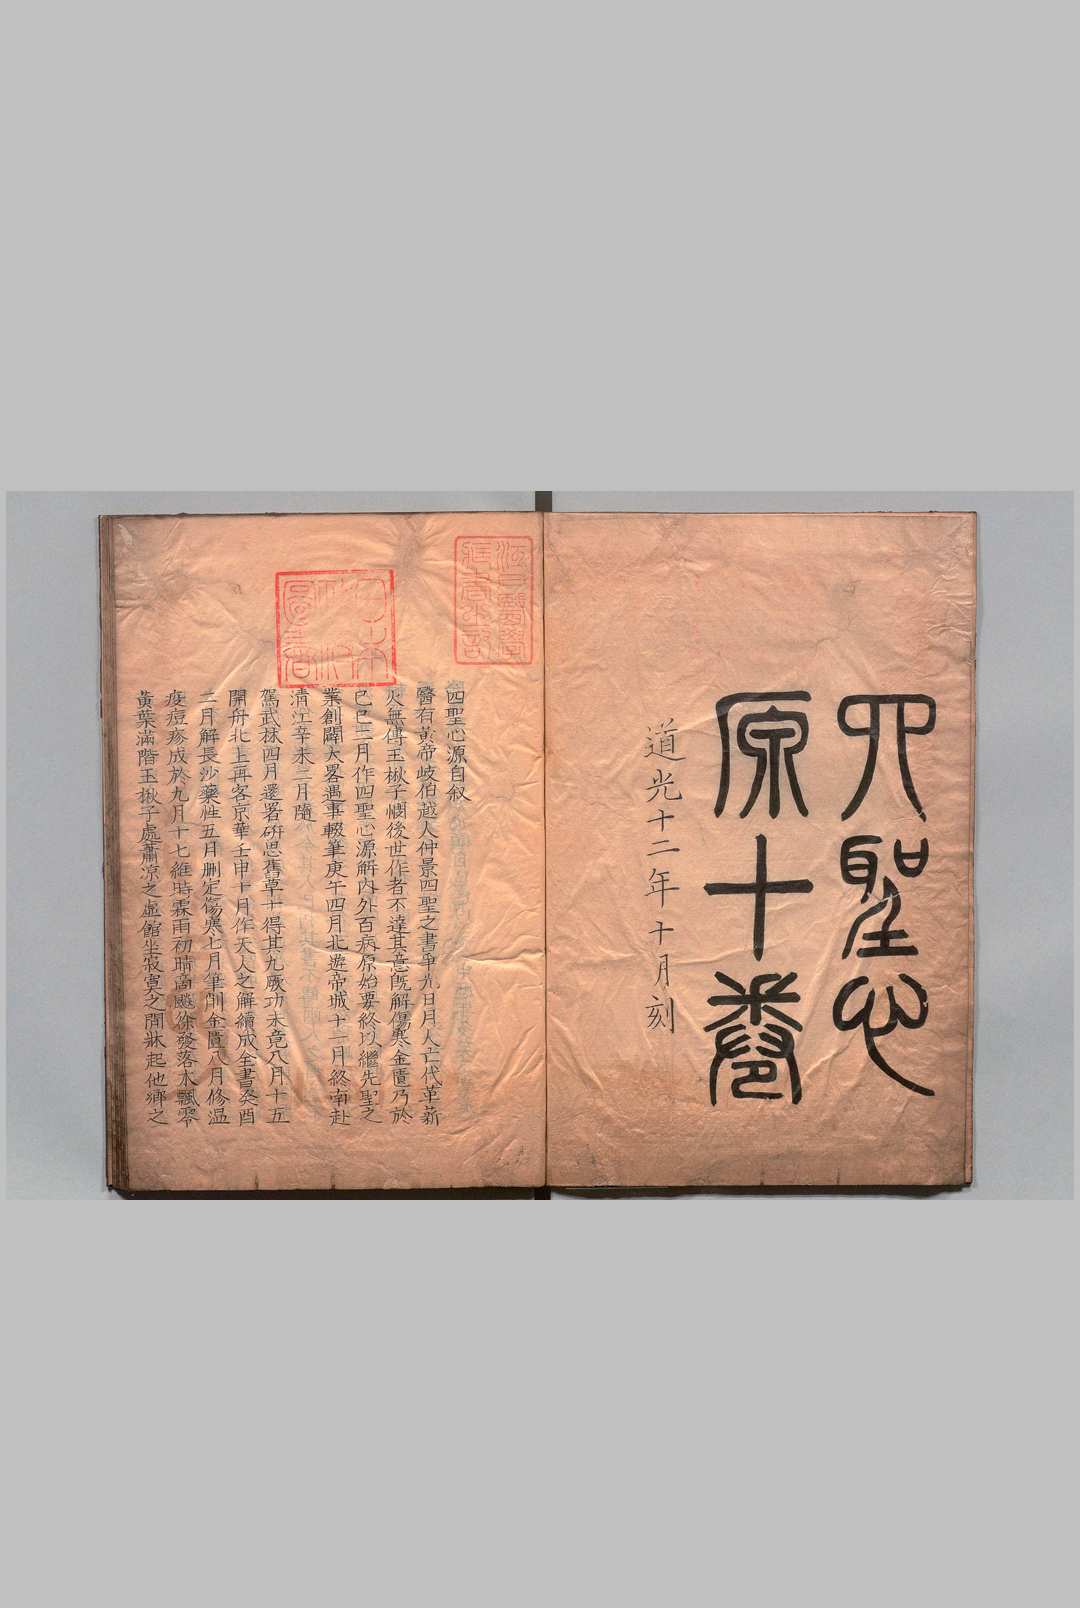 四聖心
原十卷
道光十二年十月刻
江戸醫學
藏書之記
日本
政府
圖書
四聖心源自叙
醫有黃帝岐伯越人仲景四聖之書爭光日月人亡代革薪
火無傳玉楸子憫後世作者不達其意既解傷寒金匱乃於
己巳二月作四聖心源解內外百病原始要終以繼先聖之
業創闢大畧遇事輟筆庚午四月北遊帝城十一月終南赴
清江辛未二月隨
駕武林四月還署研思舊草十得其九厥功未竟八月十五
開舟北上再客京華壬申十月作天人之解續成全書癸酉
二月解長沙藥性五月刪定傷寒七月筆削金匱八月修温
疫痘疹成於九月十七維時霖雨初晴商飈徐發落木飄零
黃葉滿階玉楸子處蕭凉之虛館坐寂寞之閒牀起他鄉之